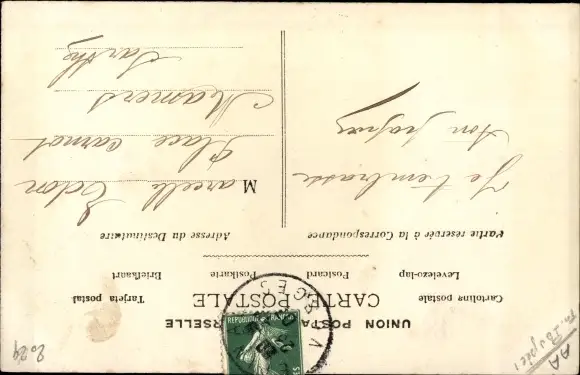 UNION POSTA RSELLE
CARTE POSTALE
Cartolina postale Levelezo-lap Postcard Postkarte Briefkaart Tarjeta postal
Partie réservée à la Correspondance
Adresse du Destinataire
Je t'embrasse
ton
Marcelle Edon
Place Carnot
Mamers
Sarthe
2024
AA